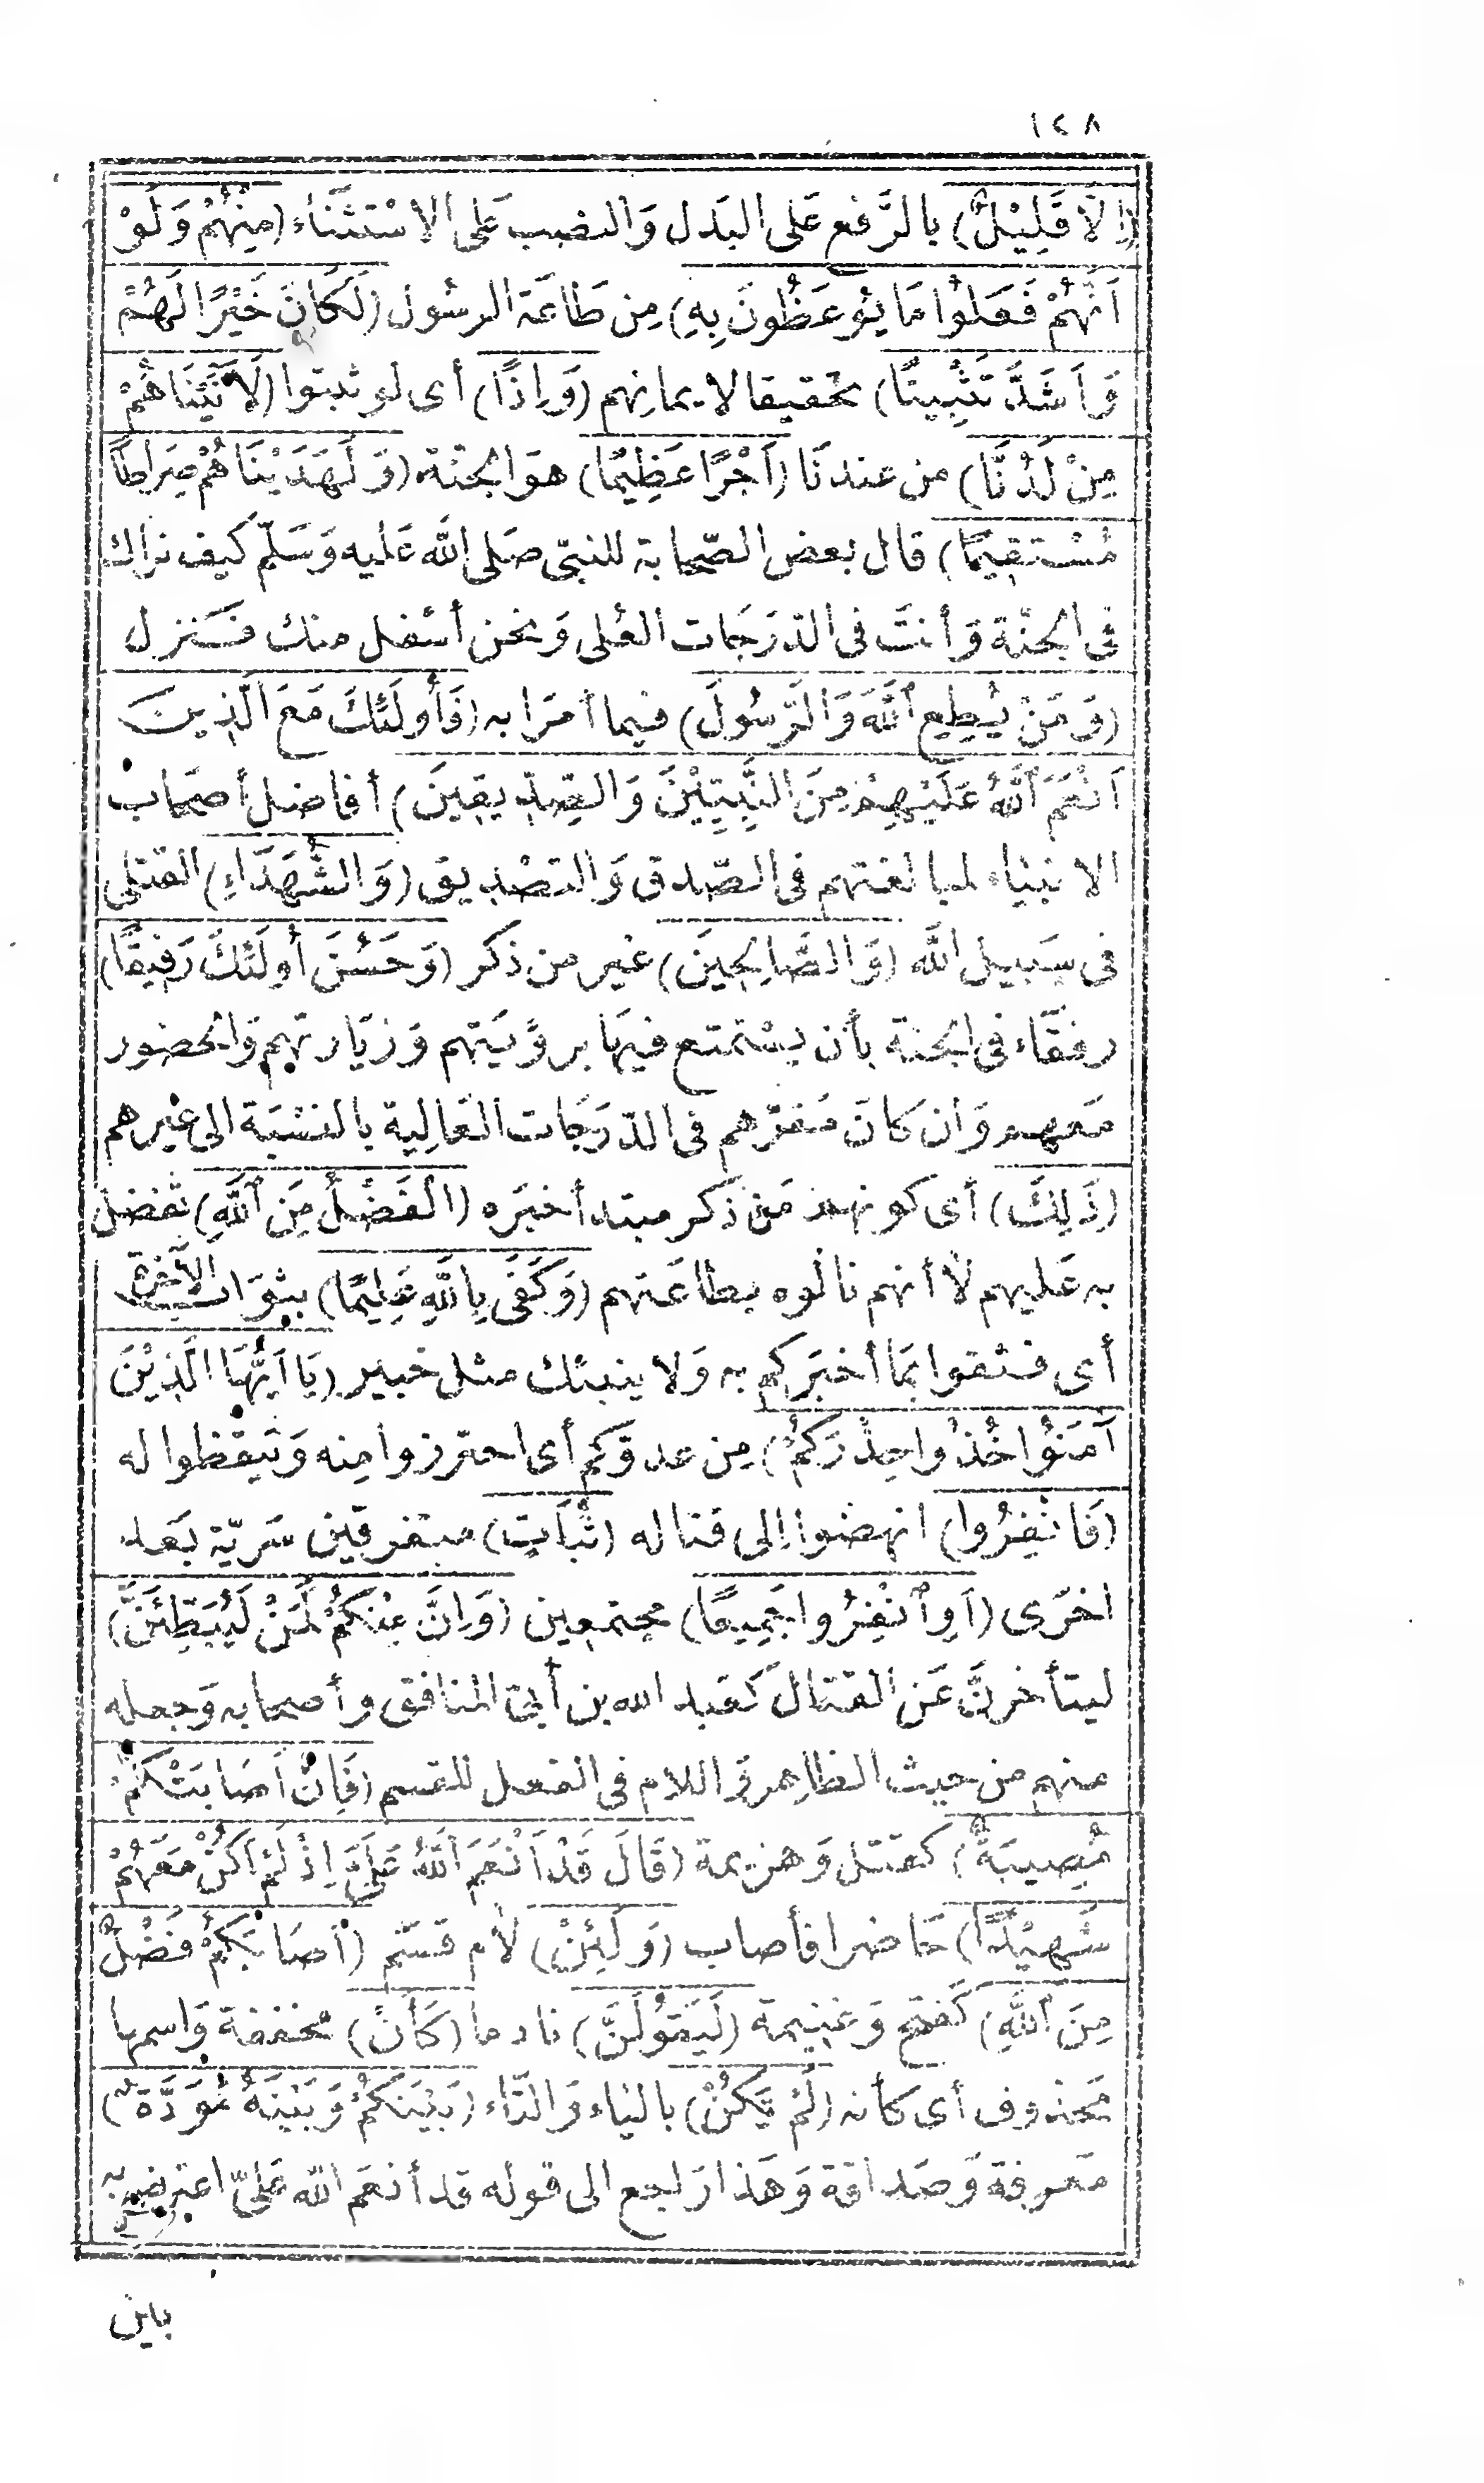 ١٤٨
(اِلَّا قَلِيْلٌ) بالرَّفع عَلى البَدل وَالنصب عَلى الاسْتثنَاء (مِنْهُمْ وَلَوْ
اَنَّهُمْ فَعَلُوْا مَا يُوْعَظُونَ بِهِ) مِن طَاعَة الرسُول (لَكَانَ خَيْرًا لَهُمْ
وَاَشَدَّ تَثْبِيتًا) تحقيقا لايمانهم (وَاِذًا) أى لو ثبتوا (لَآتَيْنَاهُمْ
مِنْ لَدُنَّا) من عندنَا (اَجْرًا عَظِيمًا) هوَ الجنّة (وَلَهَدَيْنَاهُمْ صِرَاطًا
مُسْتَقِيمًا) قال بعض الصّحابة للنبىّ صَلى اللّٰه عَليه وَسَلّم كَيف نراك
فى الجنّة وَأنتَ فى الدّرَجَات العُلى وَنحن أسْفل منك فَنَزل
(وَمَنْ يُطِعِ ٱللَّهَ وَالرَّسُولَ) فيما أمَرا به (فَأُولَئِكَ مَعَ الَّذِينَ
اَنْعَمَ ٱللَّهُ عَلَيْهِمْ مِنَ النَّبِيِّيْنَ وَالصِّدِّيقِينَ) أفاضل أصحَاب
الانبيَاء لمبالغتهم فى الصّدق وَالتصْديق (وَالشُّهَدَاءِ) القتلى
فى سَبيل اللَّه (وَالصَّالِحِينَ) غير من ذكَر (وَحَسُنَ أُولَئِكَ رَفِيقًا)
رفقَاء فى الجنة بأن يسْتمتع فيهَا برؤيَتهم وَزيَارتهم وَالحضور
مَعهم وَان كانَ مَقرّهم فى الدّرَجَات العَالِية بالنسْبَة الى غيرهم
(ذَلِكَ) أى كونهم مَع مَن ذكر مبتدأ خبَره (الْفَضْلُ مِنَ ٱللَّهِ) تفضل
به عَليهم لا أنهم نالوه بطاعَتهم (وَكَفَى بِاللَّهِ عَلِيمًا) بثوَاب الآخرة
أى فثقوا بمَا أخبَركم به وَلا ينبئك مثل خبير (يَا اَيُّهَا الَّذِيْنَ
آمَنُوْا خُذُوا حِذْرَكُمْ) مِن عدوّكم أى احترزوا مِنه وَتيقظوا له
(فَانْفِرُوا) انهضوا إلى قتاله (ثُبَاتٍ) متفرقين سَريّة بَعد
اخرَى (اَوِ ٱنْفِرُوا جَمِيعًا) مجتمعين (وَاِنَّ مِنْكُمْ لَمَنْ لَيُبَطِّئَنَّ)
ليتأخرنَّ عَن القتال كَعَبد الله بن أبىّ المنافق وأصحابه وَجعله
منهم من حيث الظاهر وَ اللام فى الفعل للقسم (فَاِنْ اَصَابَتْكُمْ
مُصِيبَةٌ) كقتل وَهزيمة (قَالَ قَدْ اَنْعَمَ ٱللَّهُ عَلَيَّ اِذْ لَمْ اَكُنْ مَعَهُمْ
شَهِيْدًا) حَاضرا فأصاب (وَلَئِنْ) لام قسَم (اَصَابَكُمْ فَضْلٌ
مِنَ ٱللَّهِ) كَفتح وَغنيمة (لَيَقُولَنَّ) نادما (كَأَنْ) مخففة وَاسمها
مَحذوف أى كأنه (لَمْ يَكُنْ) باليَاء وَالتّاء (بَيْنَكُمْ وَبَيْنَهُ مَوَدَّةٌ)
مَعرفة وَصَداقة وَهَذا رَاجع الى قوله قد أنعَم اللّٰه عَلىّ اعترض به
بين